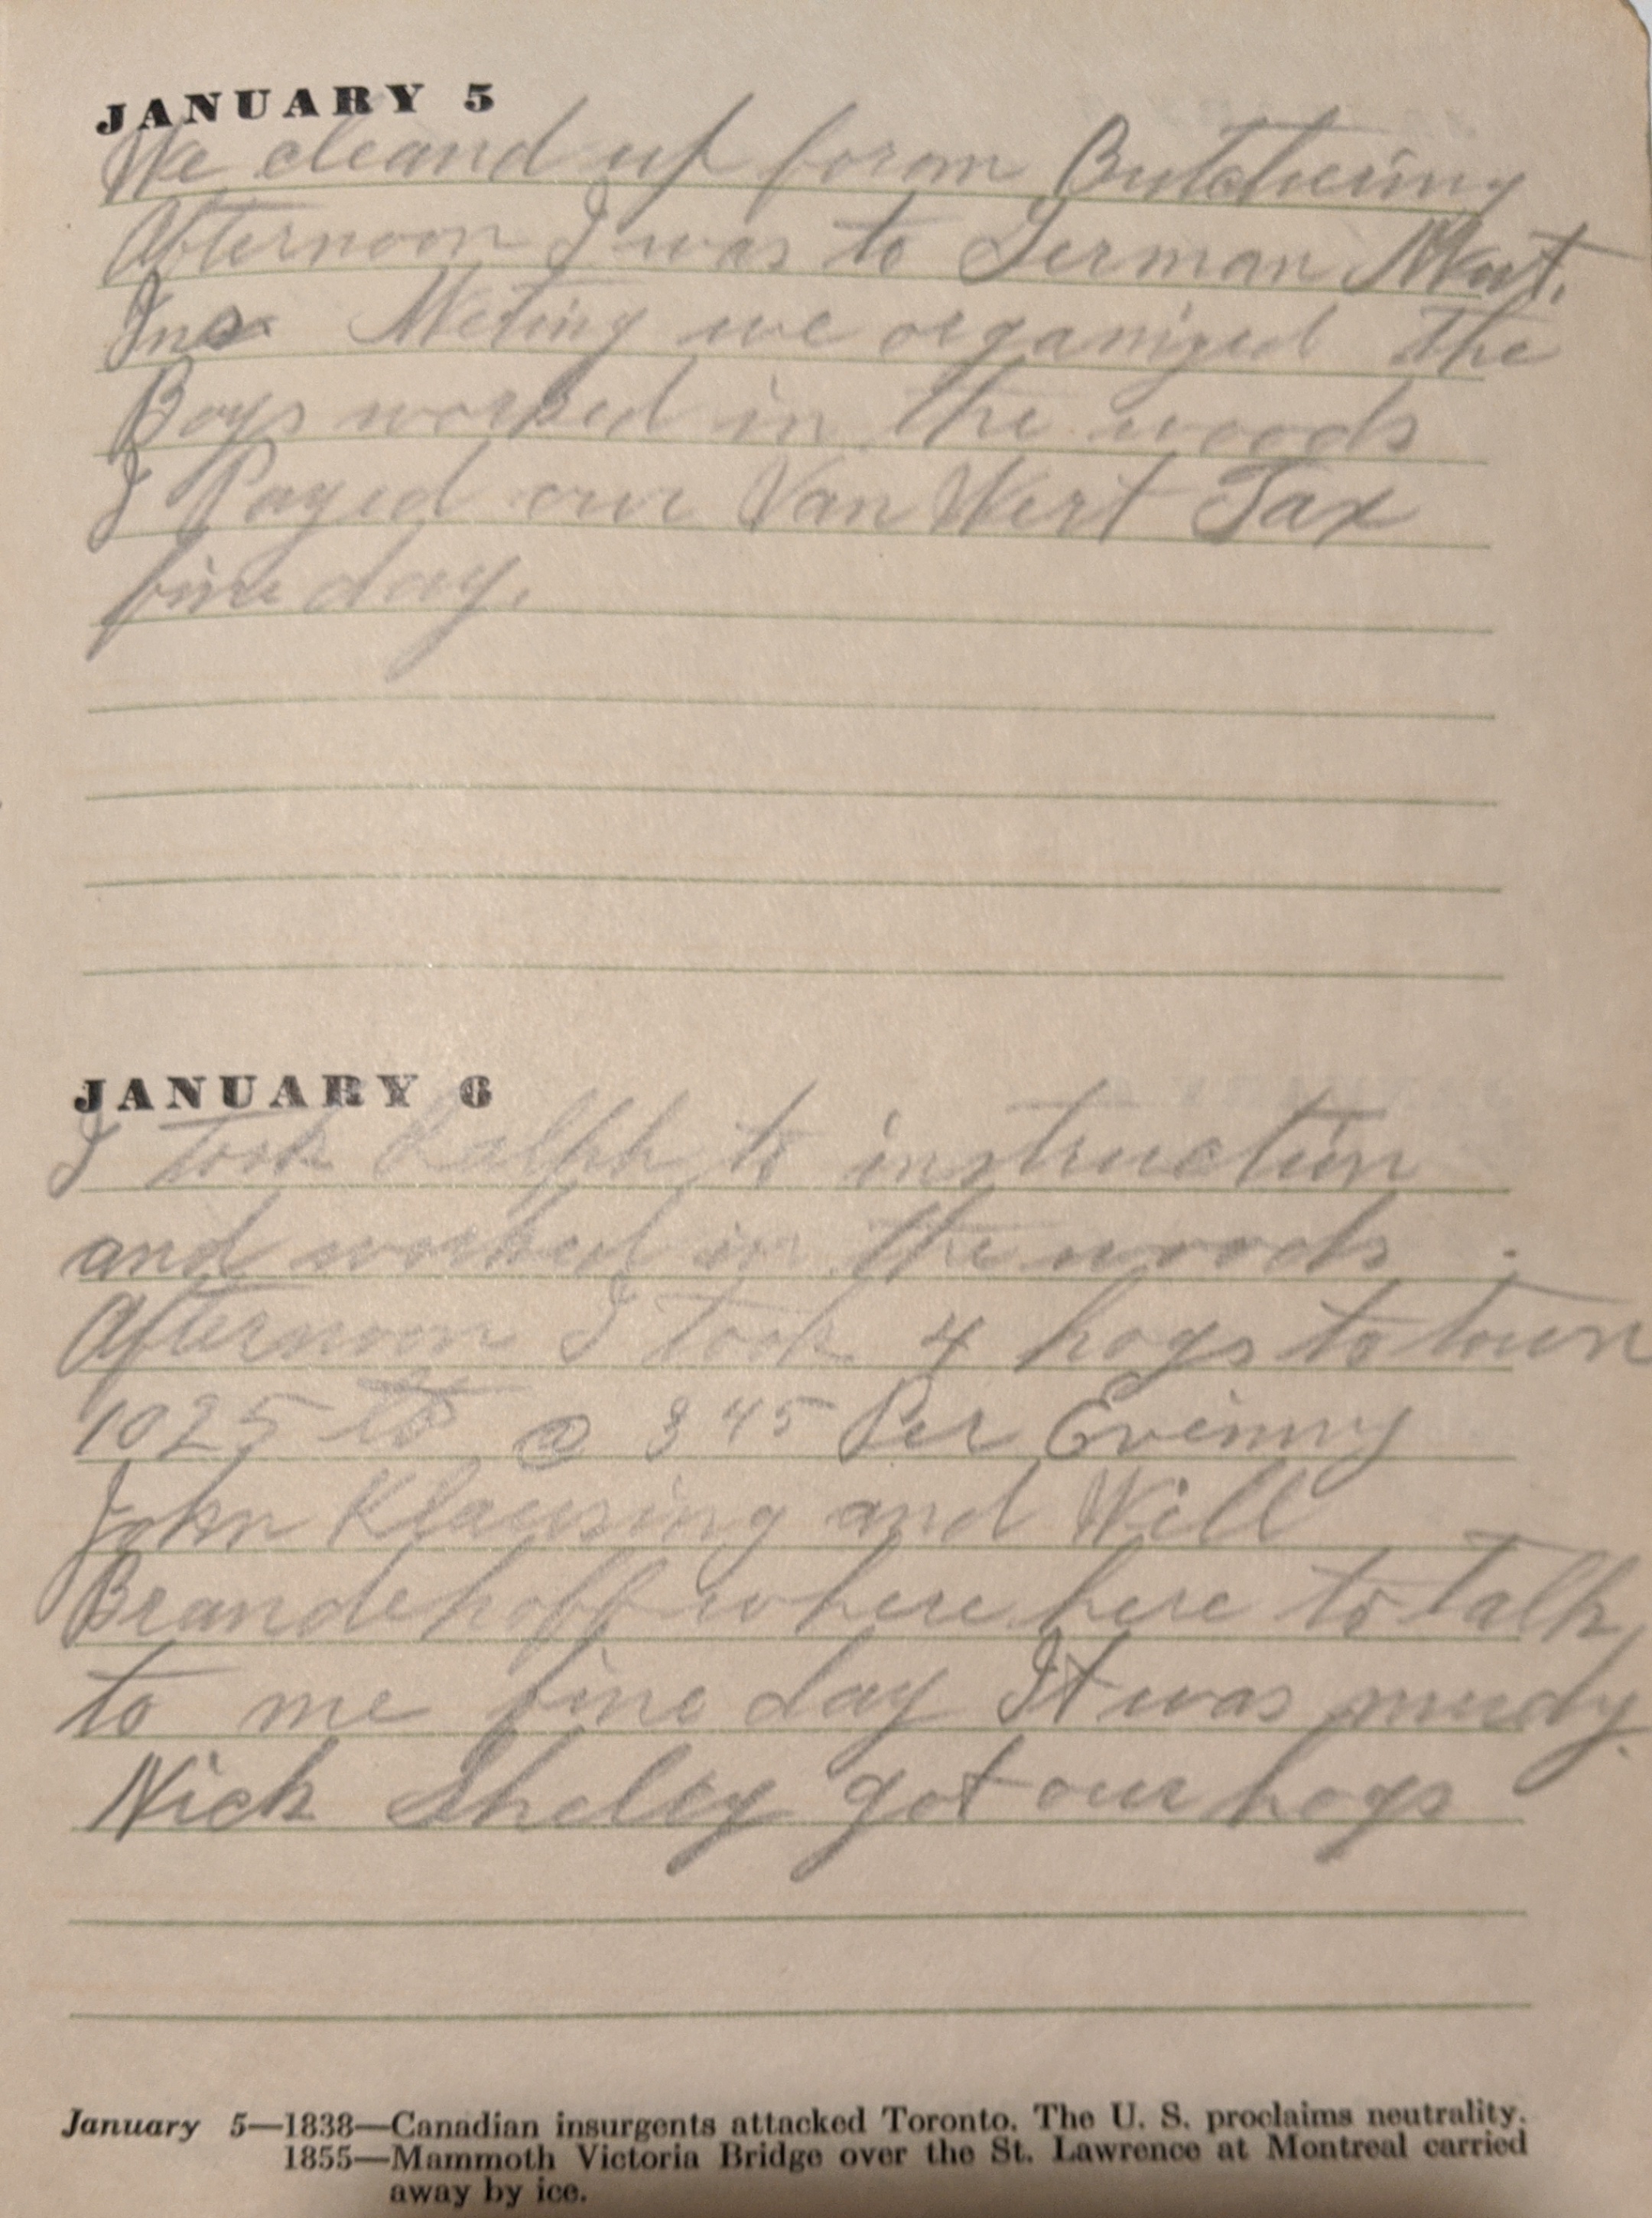 JANUARY 5
We cleand up forom Butchering
Afternoon I was to German Mut.
Ins Meting we organized the
Boys worked in the woods
I Payed our Van Wert Tax
fine day.
JANUARY 6
I took Ralph to instruction
and worked in the woods .
Afternoon I took 4 hogs to town
1025 lb @ 3 45 Per Evening
John Klausing and Will
Brandehoff where here to talk
to me fine day It was mudy.
Nick Shelby got our hogs
January 5—1838—Canadian insurgents attacked Toronto. The U. S. proclaims neutrality.
1855—Mammoth Victoria Bridge over the St. Lawrence at Montreal carried
away by ice.